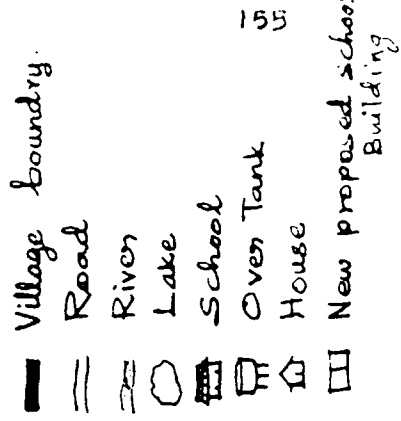 155
Village boundry.
Road
River
Lake
School
Over Tank
House
New proposed school
Building